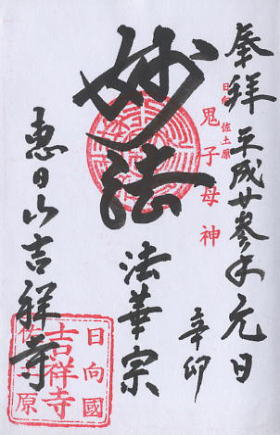 奉拝 平成廿参年元日
辛卯
日向 佐土原
鬼子母神
妙法
法華宗
恵日山吉祥寺
日向國
吉祥寺
佐土原